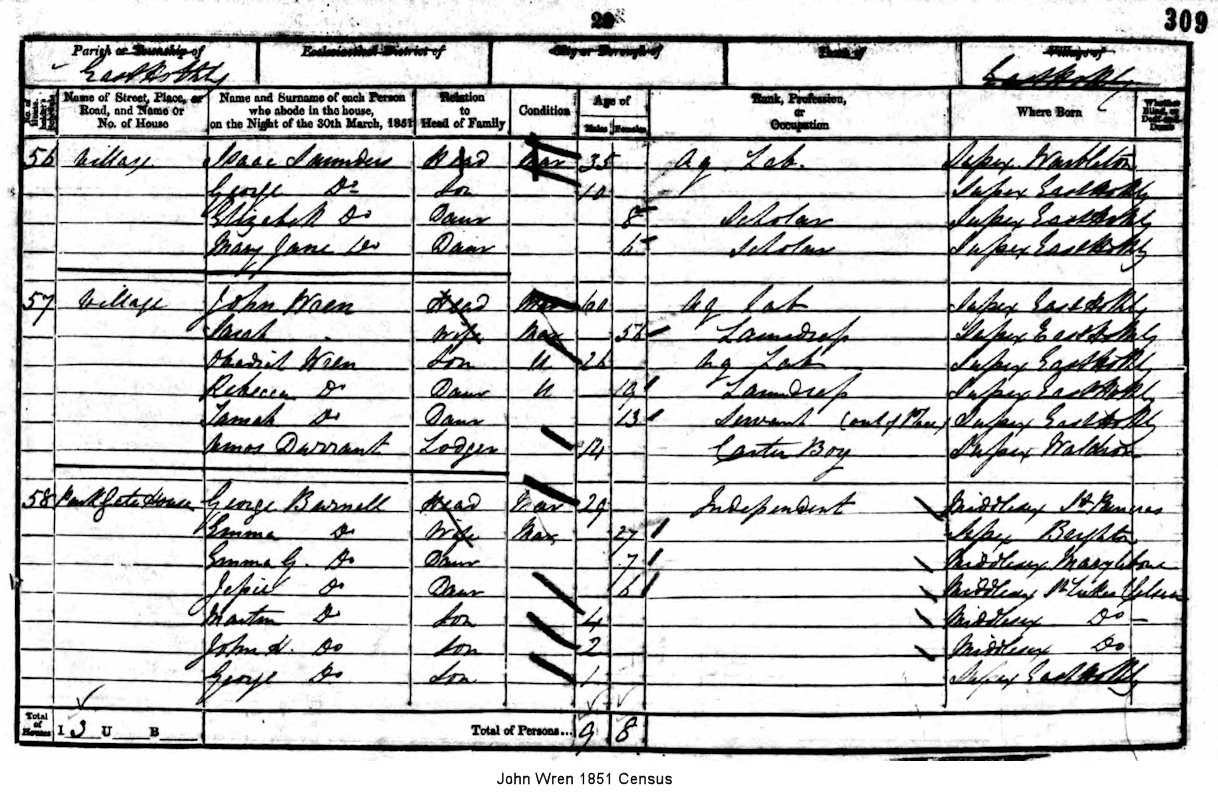 309
Parish or Township of Ecclesiastical District of City or Borough of Town of Village of
East Hothly East Hothly
Name of Street, Place, or Road, and Name or No. of House Name and Surname of each Person who abode in the house, on the Night of the 30th March, 1851 Relation to Head of Family Condition Age of Males Females Rank, Profession, or Occupation Where Born Whether Blind, or Deaf and Dumb
56 Village Isaac Saunders Head Mar 35 Ag Lab. Sussex Warbleton
George Do Son 10 Sussex East Hothly
Elizabeth Do Daur 8 Scholar Sussex East Hothly
Mary Jane Do Daur 6 Scholar Sussex East Hothly
57 Village John Wren Head Mar 60 Ag Lab Sussex East Hothly
Sarah Wife Mar 56 Laundress Sussex East Hothly
Obadiah Wren Son U 26 Ag Lab Sussex East Hothly
Rebecca Do Daur U 19 Laundress Sussex East Hothly
Do Daur 13 Servant (out of Place) Sussex East Hothly
Amos Durrant Lodger 14 Carter Boy Sussex Waldron
58 Park Gate House George Burnell Head Mar 29 Independent Middlesex St Pancras
Emma Do Wife Mar 27 Sussex
Emma G. Do Daur 7 Middlesex Marylebone
Jessie Do Daur 6 Middlesex St Lukes Chelsea
Martin Do Son 4 Middlesex Do
John H. Do Son 2 Middlesex Do
George Do Son 1 Sussex East Hothly
Total of Houses I 3 U B Total of Persons... 9 8
John Wren 1851 Census